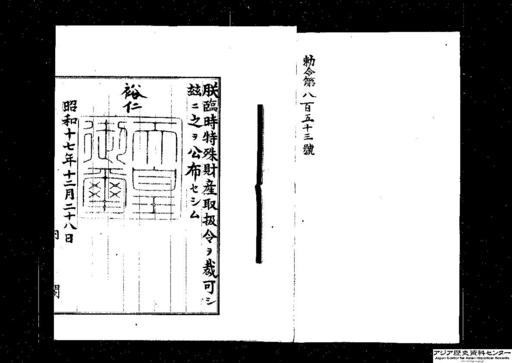 勅令第八百五十三號
朕臨時特殊財産取扱令ヲ裁可シ
玆ニ之ヲ公布セシム
裕仁
天皇
御璽
昭和十七年十二月二十八日
内閣
アジア歴史資料センター
Japan Center for Asian Historical Records